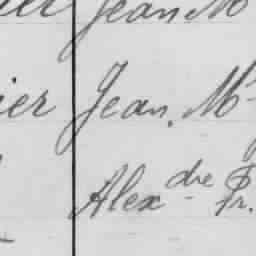 Jean M
ier Jean. M
Alex dre Pr.